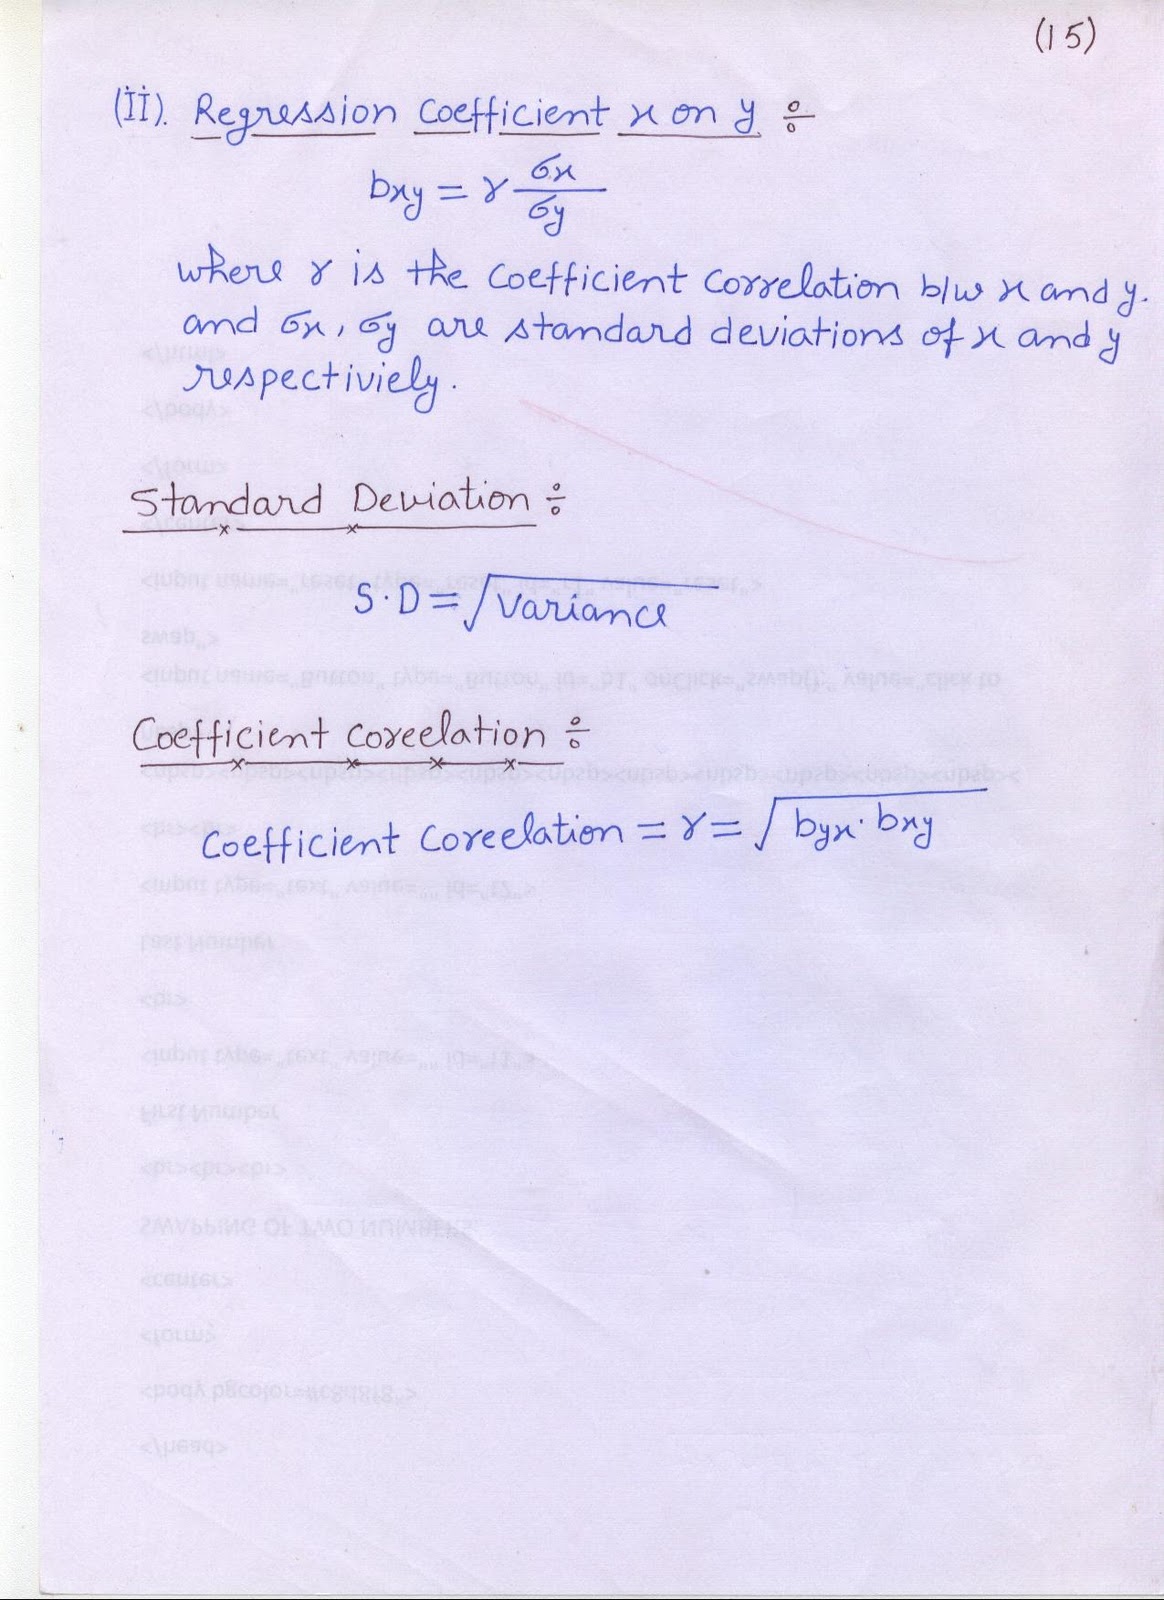 (15)
(ii). Regression Coefficient x on y ÷
bxy = r σx/σy
where r is the coefficient correlation b/w x and y.
and σx, σy are standard deviations of x and y
respectiviely.
Standard Deviation ÷
S.D = √variance
Coefficient coreelation ÷
Coefficient coreelation = r = √byx · bxy